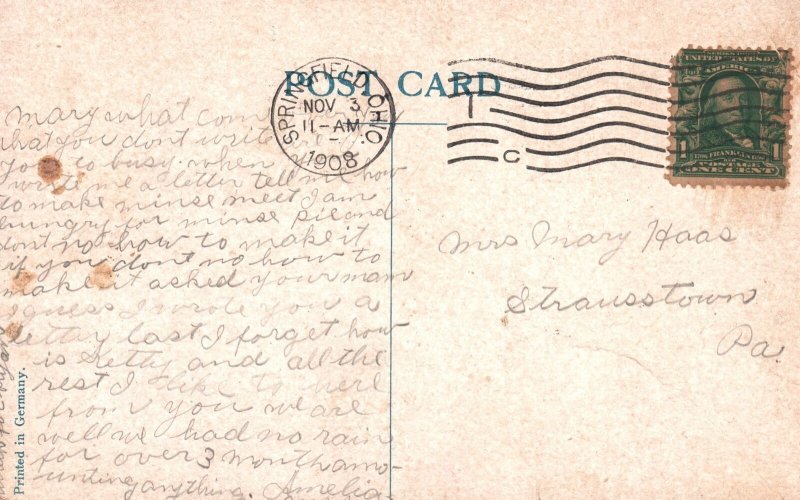 POST CARD
SPRINGFIELD, OHIO.
NOV 3
11-AM
1908
T
C
SERIES 1902
UNITED STATES OF
AMERICA
1
FRANKLIN
POSTAGE
ONE CENT
Mary what
that you dont write
you to busy. when you
write me a letter tell me how
to make minse meet I am
hungry for minse pie and
dont no how to make it
if you dont no how to
make it asked your mam
I guess I wrote you a
letter last I forget how
is Hetty and all the
rest I like to here
from you we are
well we had no rain
for over 3 month amo-
unting anything. Amelia
Mrs Mary Haas
Strausstown
Pa.
Printed in Germany.